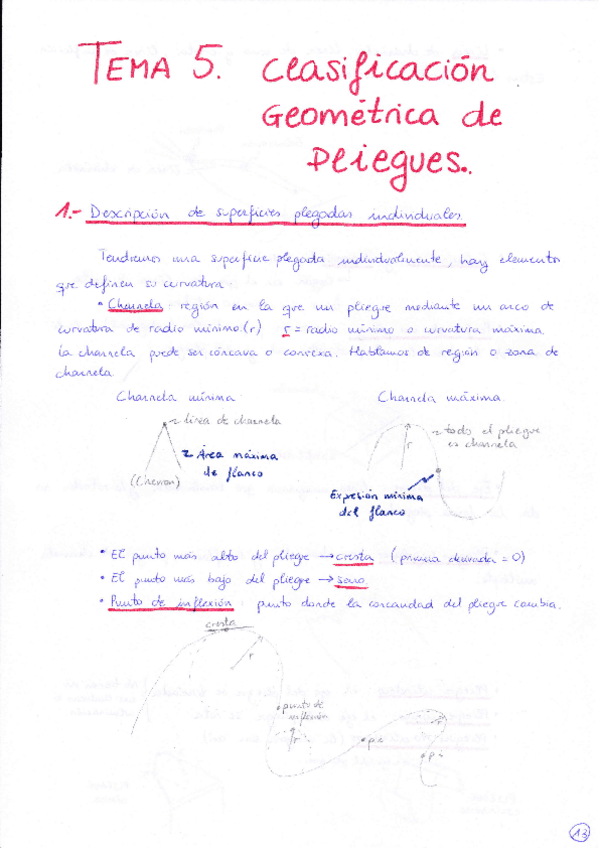 TEMA 5. Clasificación
Geométrica de
Pliegues.
1.- Descripción de superficies plegadas individuales.
Tendremos una superficie plegada individualmente, hay elementos
que definen su curvatura
• Charnela: región en la que un pliegue mediante un arco de
curvatura de radio mínimo (r) r = radio mínimo o curvatura máxima
la charnela puede ser cóncava o convexa. Hablamos de región o zona de
charnela
Charnela mínima
Charnela máxima.
línea de charnela
Área máxima
de flanco
(Chevron)
todo el pliegue
es charnela
r
Expresión mínima
del flanco
• El punto más alto del pliegue → cresta (primera derivada = 0)
• El punto más bajo del pliegue → seno
• Punto de inflexión: punto donde la concavidad del pliegue cambia.
cresta
r
punto de
inflexión
r
p.i
r
p.i
13